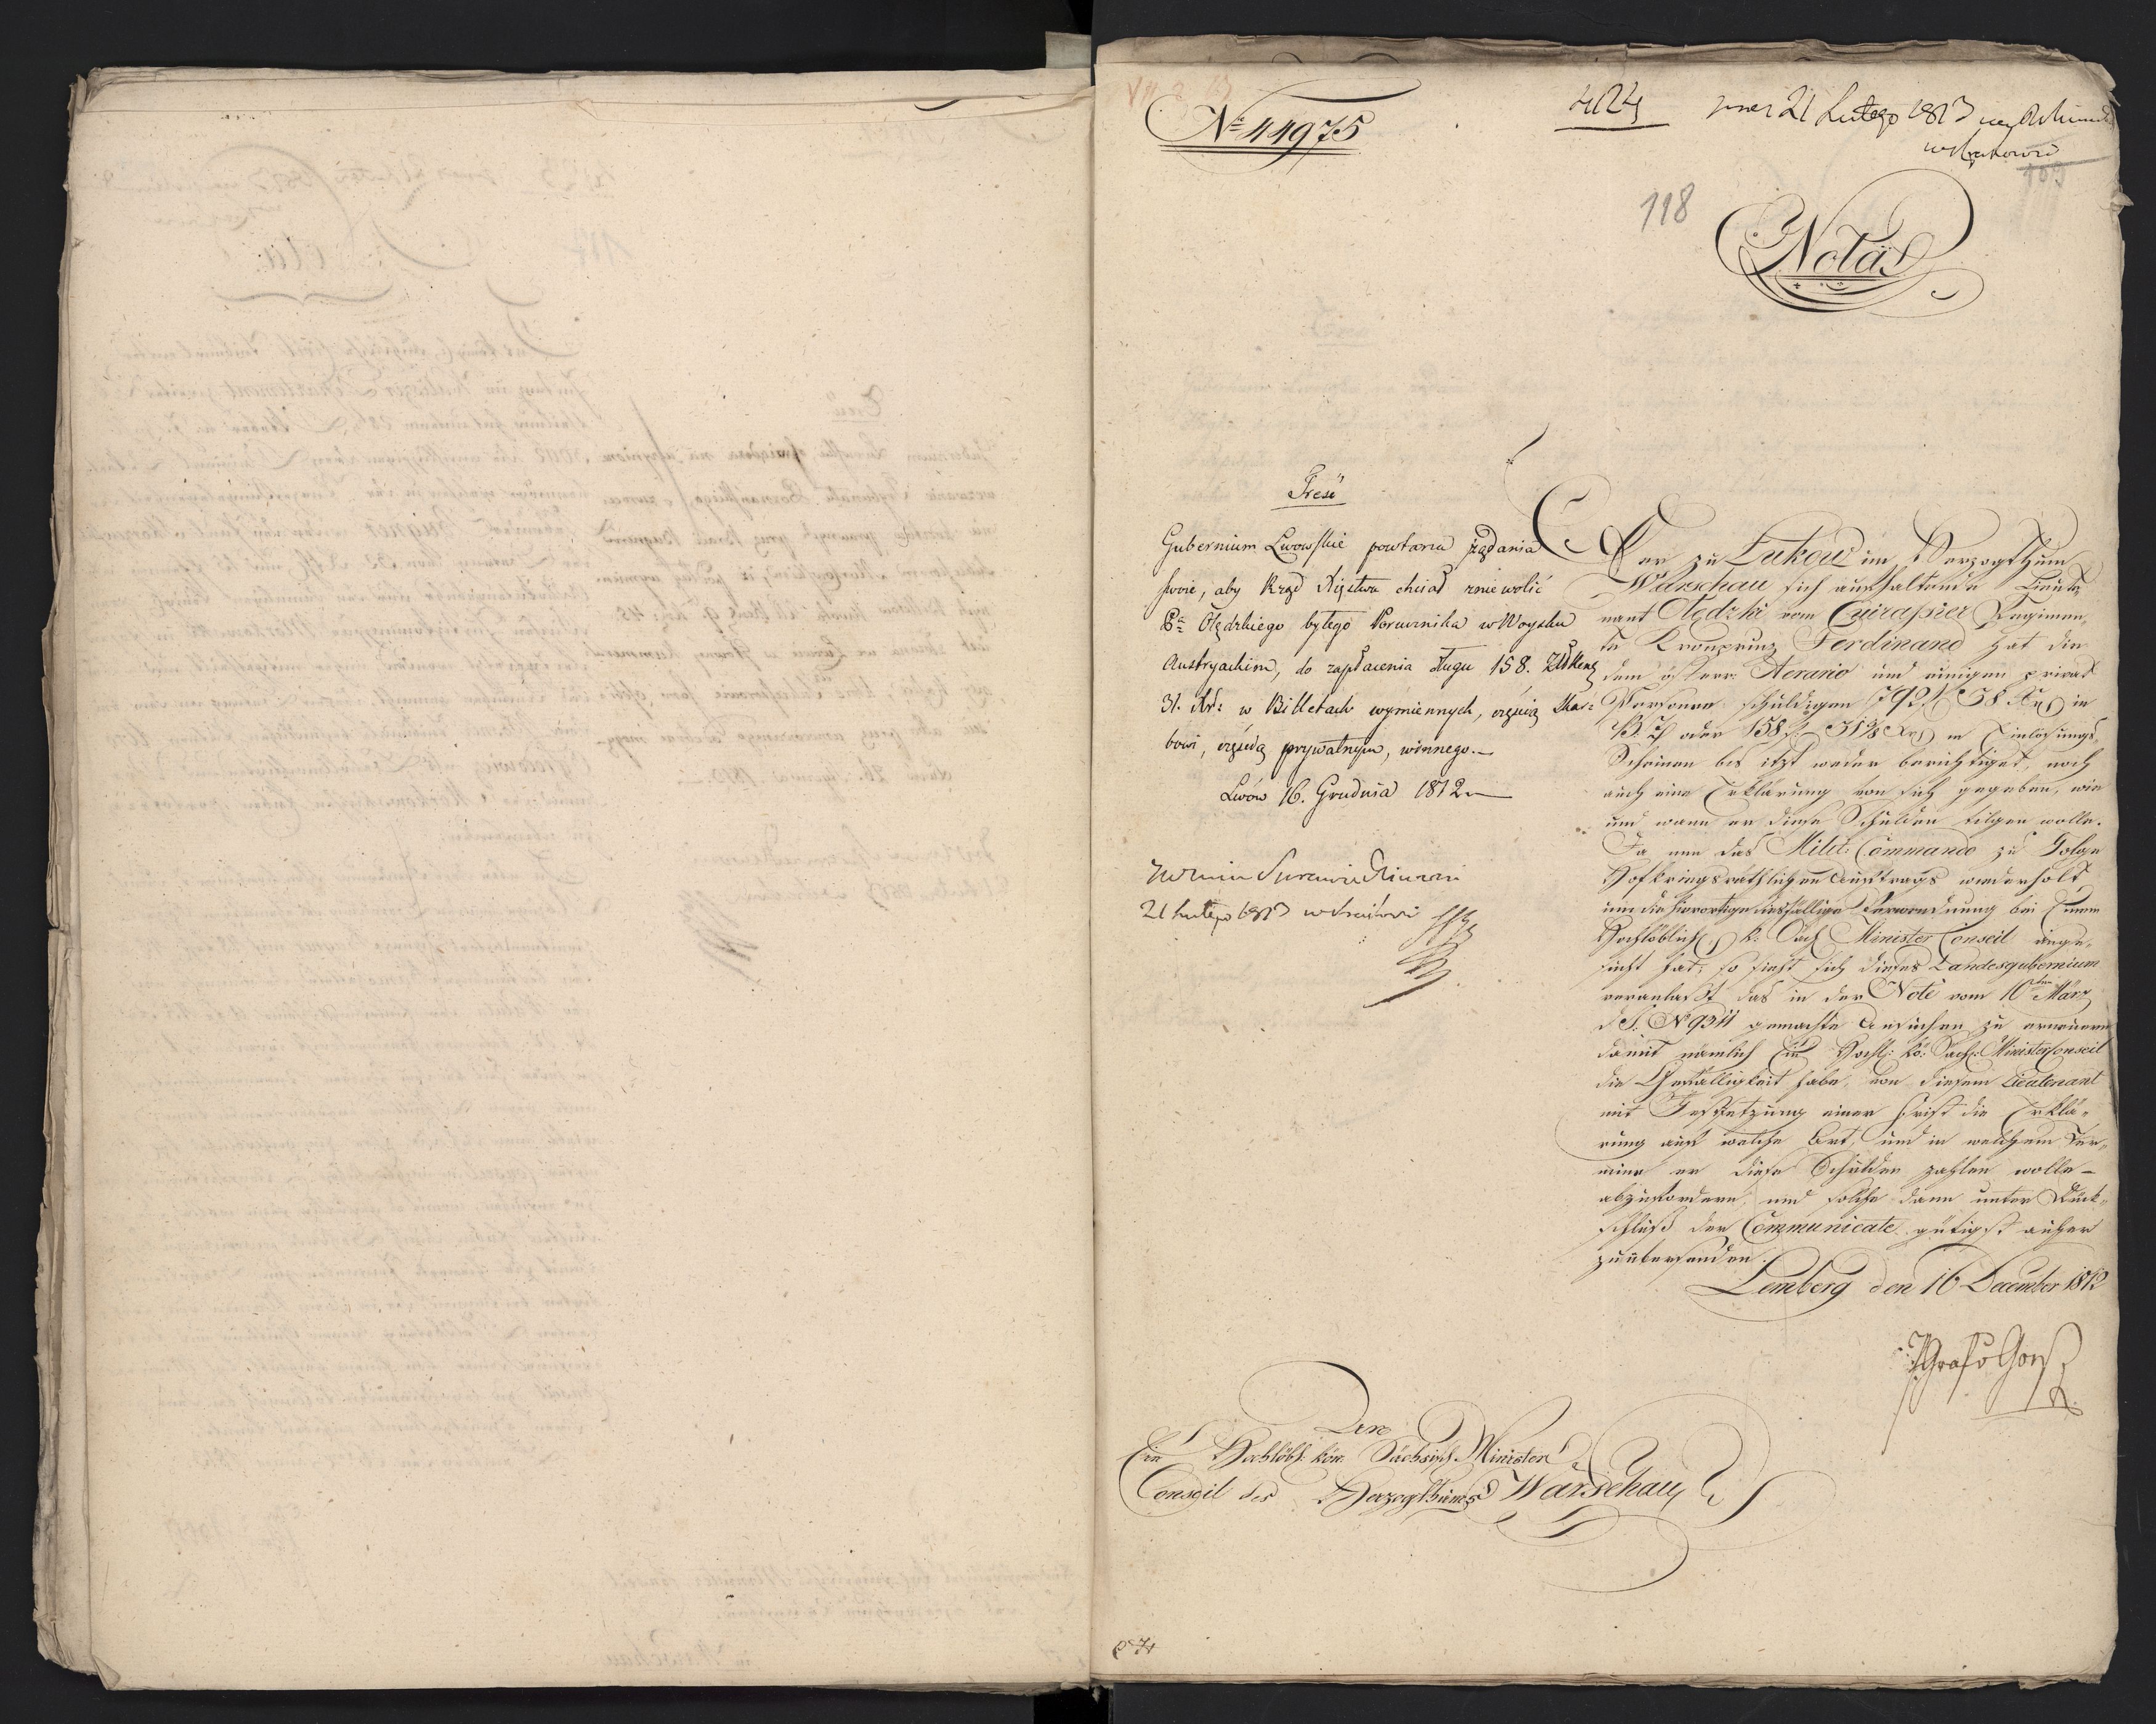 № 44975
424
21 Lutego 1813
w Krakowie
118
103
Nota
Treść
Gubernium Lwowskie powtarza żądania
swoie, aby Rząd Xięztwa chciał zniewolić
Pa Olędzkiego byłego Porucznika w Woysku
Austryackim, do zapłacenia długu 158. ZłRen
31. Xr: w Billetach wymiennych, częścią Skar=
bowi, częścią prywatnym, winnego.—
Lwów 16. Grudnia 1812
21 Lutego 1813 w Krakowie
Der zu Łukow im Herzogthum
Warschau sich aufhaltende Lieute
nant Olędzki vom Cuirassier Regimen,
te Kronprinz Ferdinand hat die
dem österr. Aerario und einigen privat
Personen schuldigen 792 f 38 Xr in
B. Z. oder 158 f. 31 Xr in Einlösungs,
Scheinen bis itzt weder berichtiget, noch
auch eine Erklärung von sich gegeben, wie
und wann er diese Schulden tilgen wolle.
Da nun das Milit: Commando zu Folge
Hofkriegsräthlichen Auftrags wiederholt
um die hierortige diesfällige Verwendung bei Einem
Hochlöblich k: Säch Minister Conseil ange,
sucht hat; so sieht sich dieses Landesgubernium
veranlaßt das in der Note vom 10ten März
d. J. № 9311 gemachte Ansuchen zu erneuern
damit nämlich Ein Hochl: kö: Säch: Minister Conseil
die Gefälligkeit habe, von diesem Lieutenant
mit Festsetzung einer Frist die Erklä,
rung auf welche Art, und in welchem Ter,
mine er diese Schulden zahlen wolle
abzufordern, und solche dann unter Rück,
schluß der Communicate gütigst anher
zu übersenden.
Lemberg den 16 December 1812
Graf v Goeß
An
Ein Hochlöbl: kön: Sächsisch. Minister
Conseil des Herzogthums Warschau